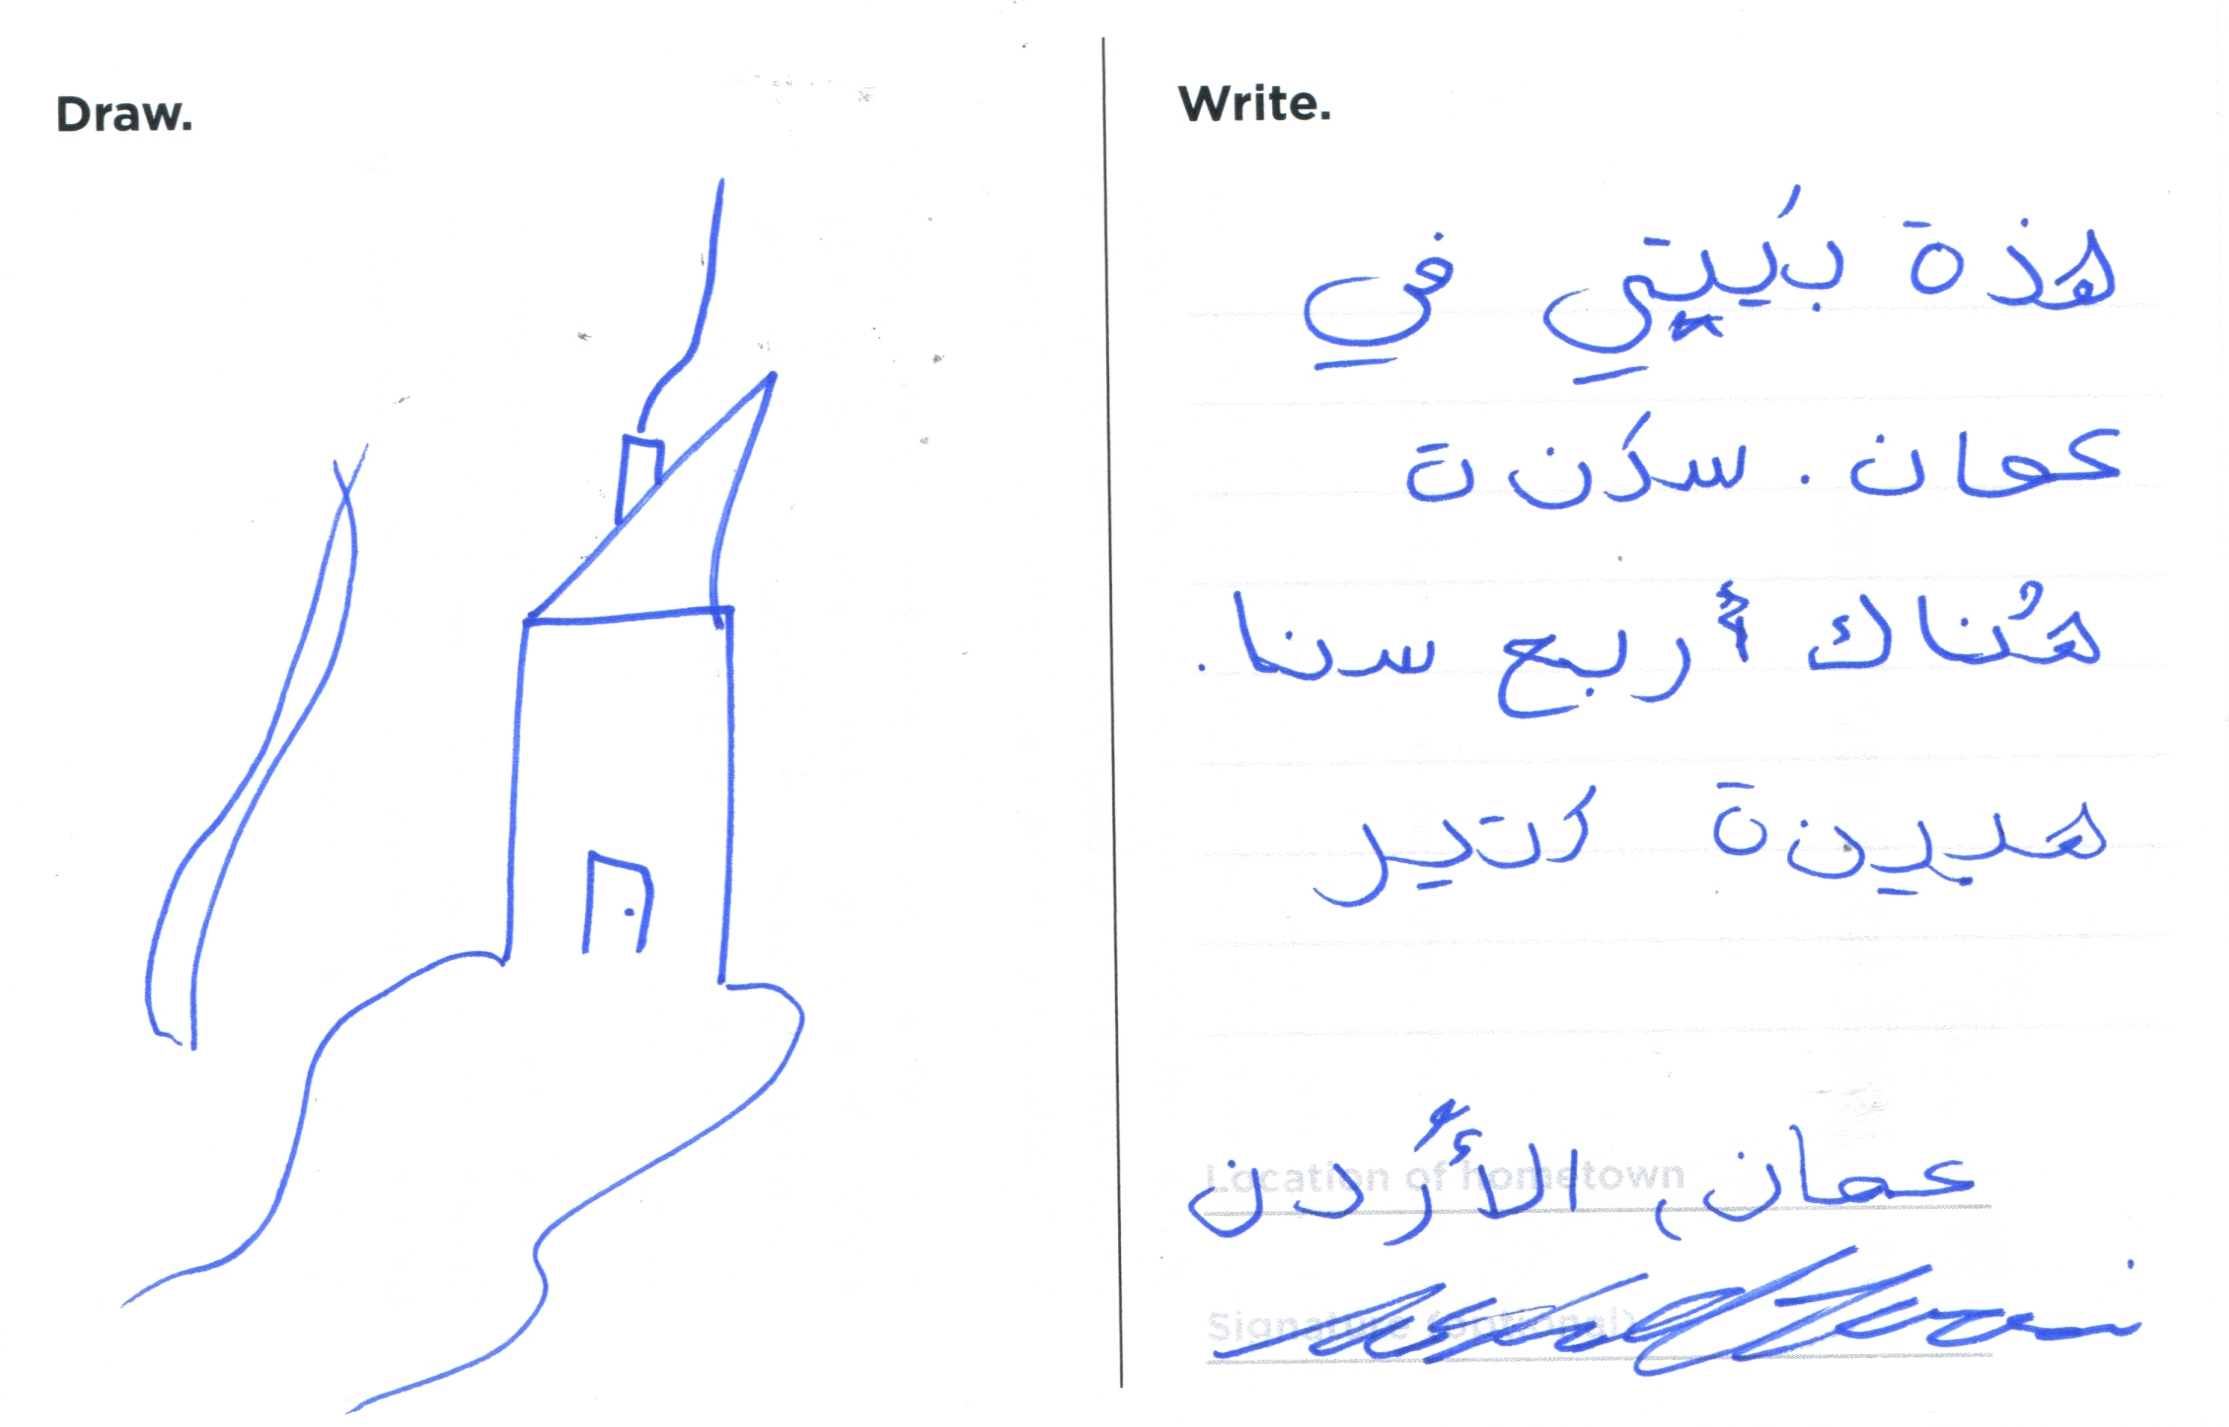 Draw.
Write.
هذة بَيتي في
عمان. سكَن ت
هُناك أربع سنا.
هديينة كتير
Location of hometown
عمان، الأُردن
Signature (optional)